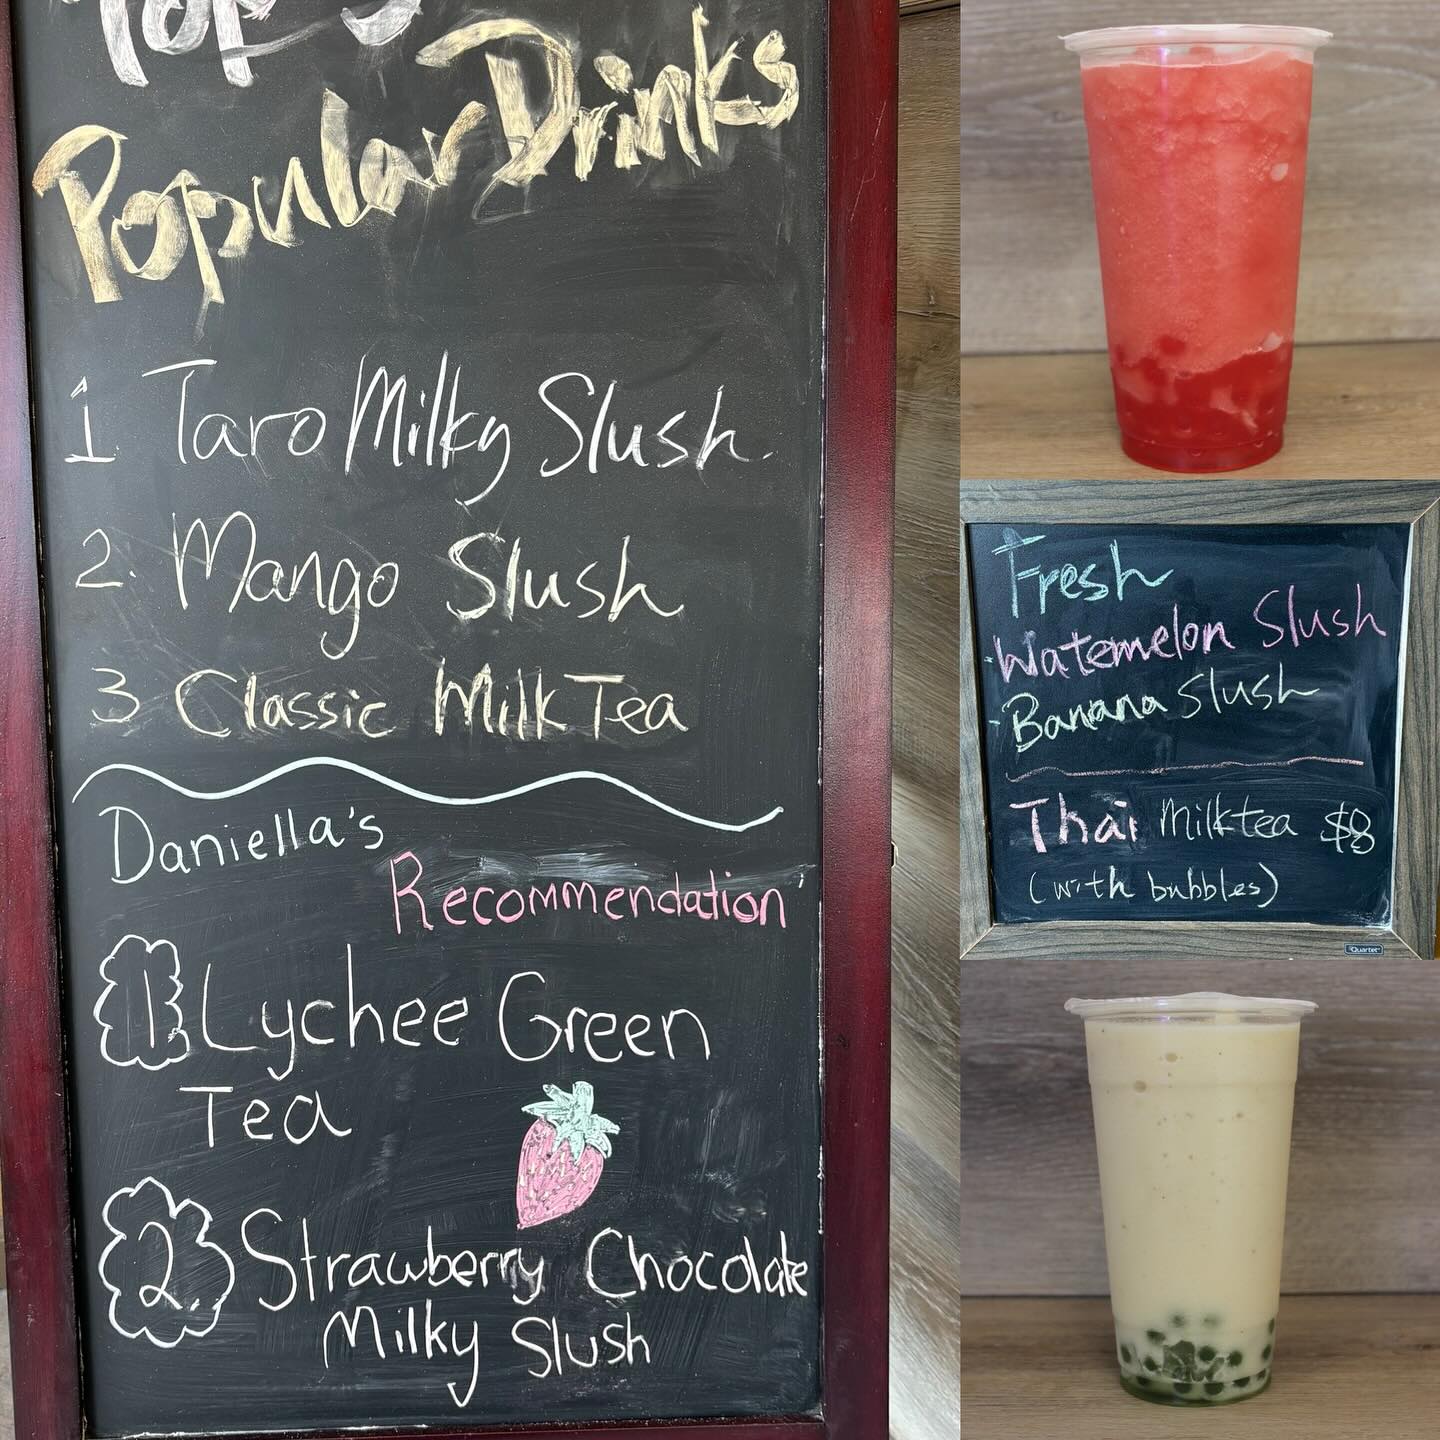 Top
Popular Drinks
1 Taro Milky Slush
2. Mango Slush
3 Classic Milk Tea
Daniella's
Recommendation
1. Lychee Green
Tea
2. Strawberry Chocolate
Milky Slush
Fresh
- Watemelon Slush
- Banana Slush
Thai Milk tea $8
(with bubbles)
Quartet